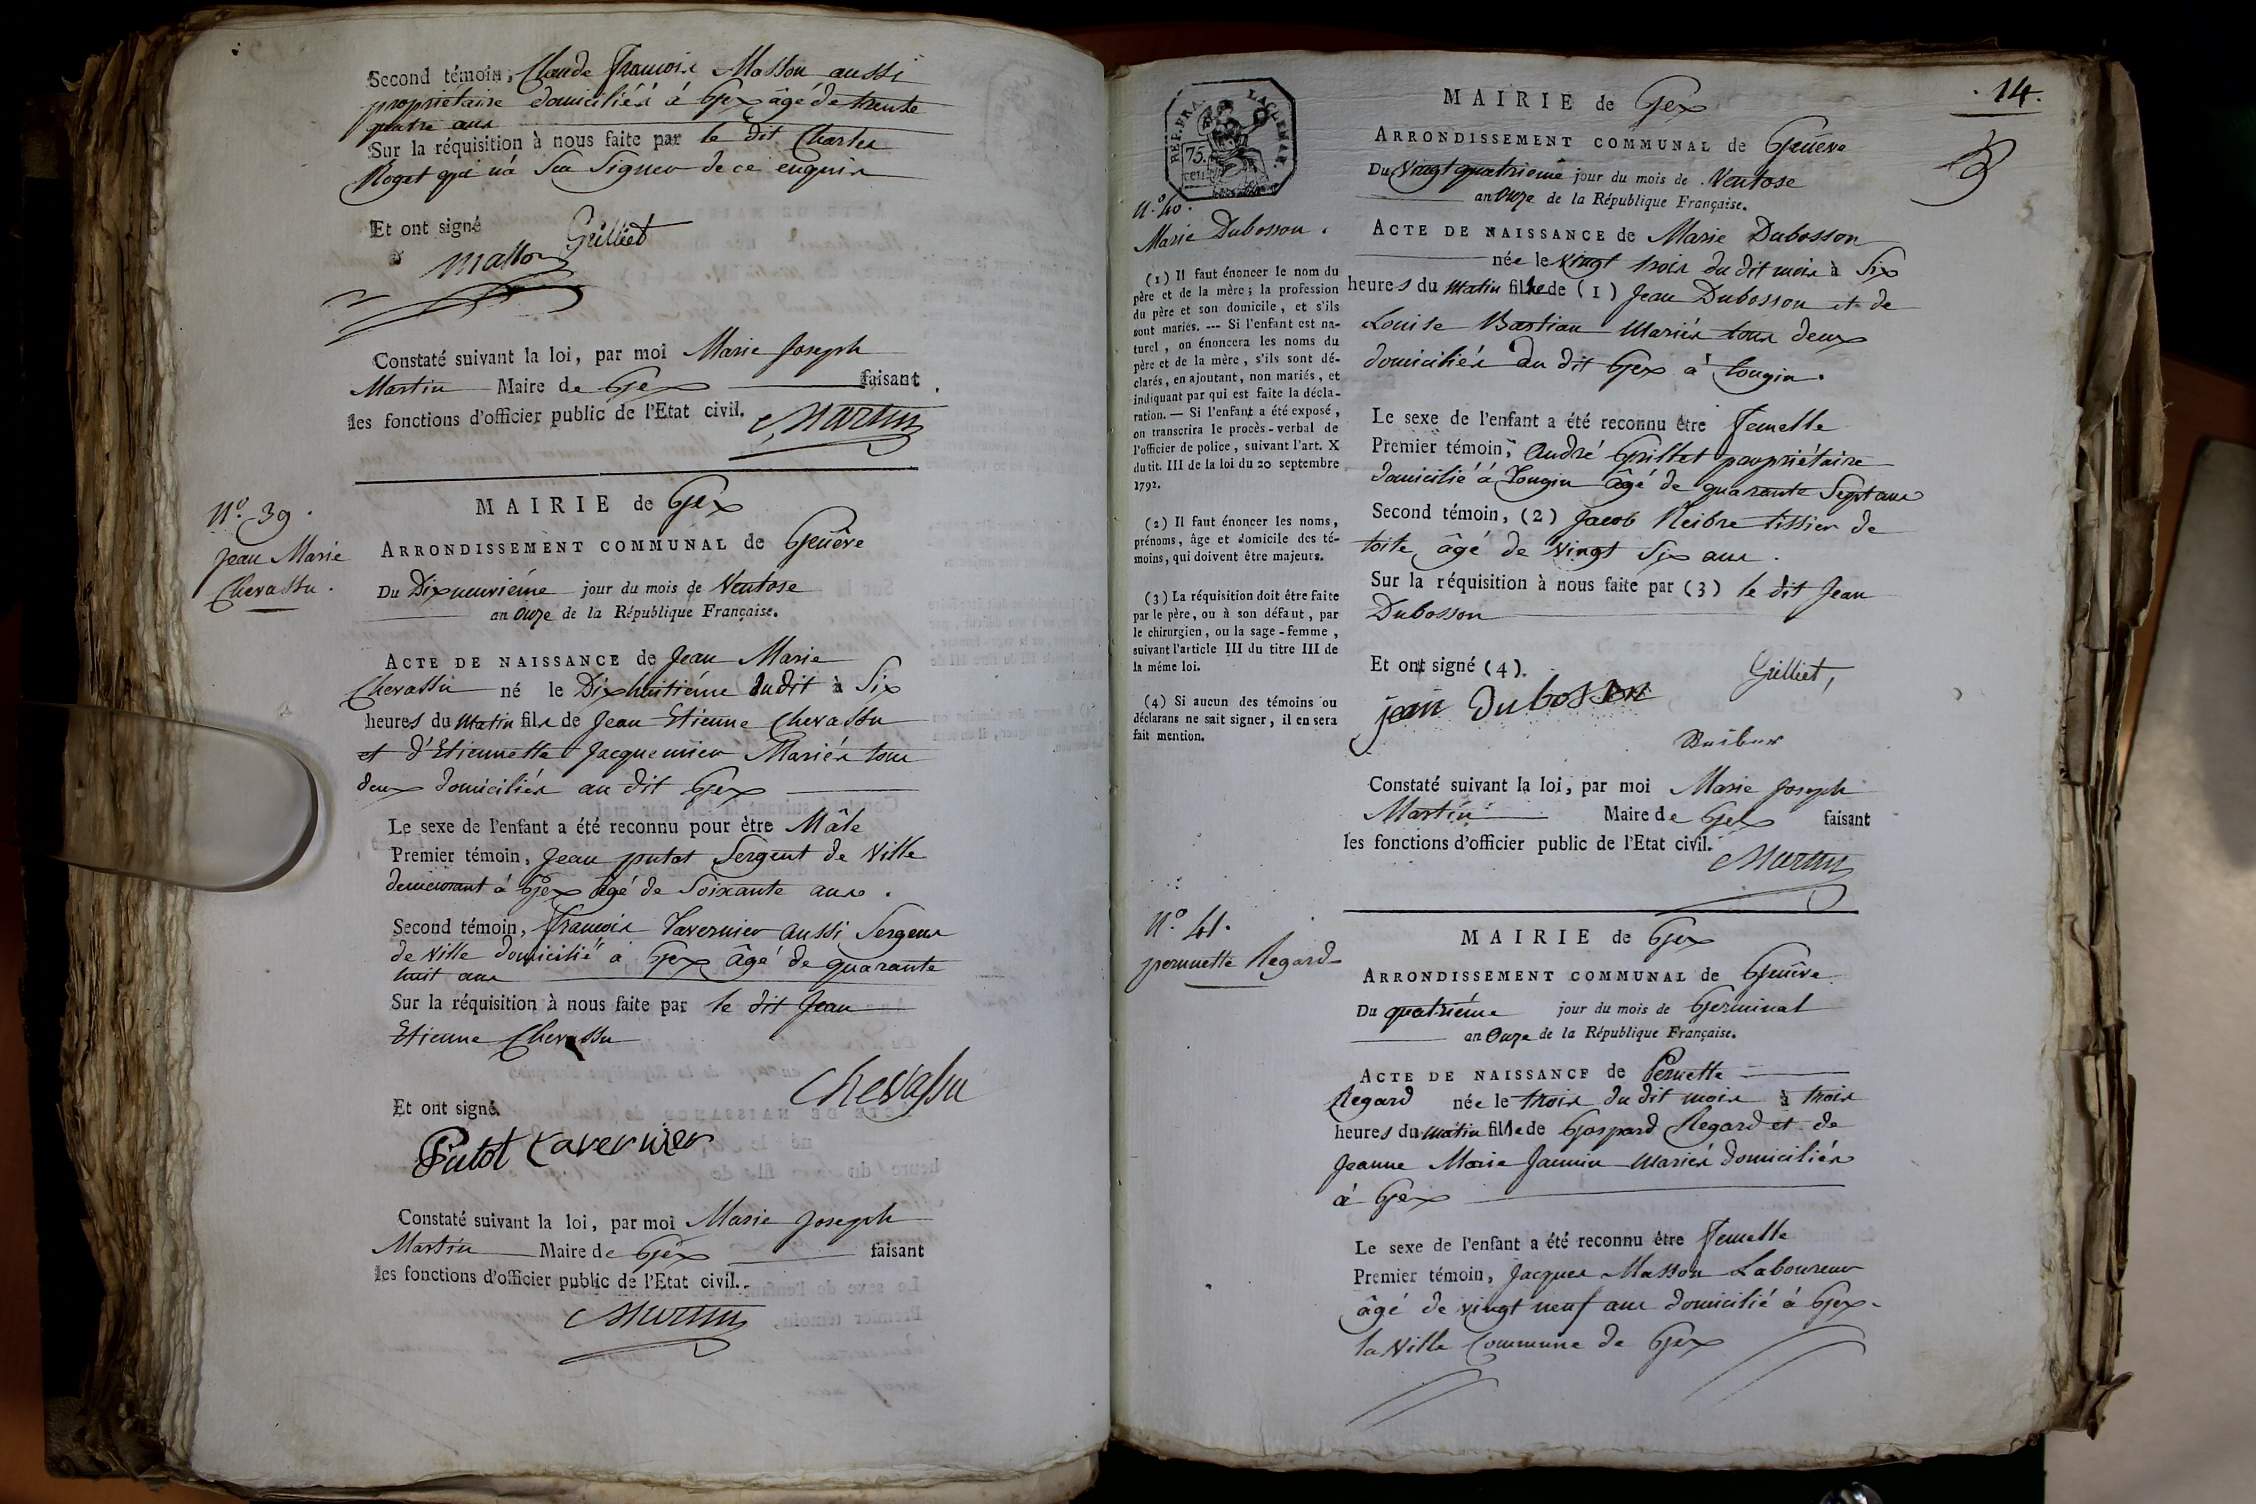 Second témoin, Claude François Masson aussi
propriétaire domiciliés à Gex âgé de trente
quatre ans
Sur la réquisition à nous faite par le dit Charles
Roget qui n'a Su Signer de ce enquis
Et ont signé
Grilliet
Masson
Constaté suivant la loi, par moi Marie Joseph
Martin Maire de Gex faisant
les fonctions d'officier public de l'Etat civil.
Martin
N.º 39.
Jean Marie
Chevassu.
MAIRIE de Gex
ARRONDISSEMENT COMMUNAL de Genève
Du Dix neuvième jour du mois de Ventose
an Onze de la République Française.
ACTE DE NAISSANCE de Jean Marie
Chevassu né le Dix huitième dudit à Six
heures du matin fils de Jean Etienne Chevassu
et d'Etiennette Jacquemier Mariés tous
deux domiciliés au dit Gex
Le sexe de l'enfant a été reconnu pour être Mâle
Premier témoin, Jean putot Sergent de Ville
demeurant à Gex âgé de Soixante ans.
Second témoin, François Tavernier aussi Sergent
de Ville domicilié à Gex âgé de quarante
huit ans
Sur la réquisition à nous faite par le dit Jean
Etienne Chevassu
Chevassu
Et ont signé.
Putot tavernier
Constaté suivant la loi, par moi Marie Joseph
Martin Maire de Gex faisant
les fonctions d'officier public de l'Etat civil.
Martin
14.
REP. FRA.
75.
cent
N.º 40.
Marie Dubosson.
(1) Il faut énoncer le nom du
père et de la mère; la profession
du père et son domicile, et s'ils
sont mariés. --- Si l'enfant est na-
turel, on énoncera les noms du
père et de la mère, s'ils sont dé-
clarés, en ajoutant, non mariés, et
indiquant par qui est faite la décla-
ration. — Si l'enfant a été exposé,
on transcrira le procès-verbal de
l'officier de police, suivant l'art. X
du tit. III de la loi du 20 septembre
1792.
(2) Il faut énoncer les noms,
prénoms, âge et domicile des té-
moins, qui doivent être majeurs.
(3) La réquisition doit être faite
par le père, ou à son défaut, par
le chirurgien, ou la sage-femme,
suivant l'article III du titre III de
la même loi.
(4) Si aucun des témoins ou
déclarans ne sait signer, il en sera
fait mention.
MAIRIE de Gex
ARRONDISSEMENT COMMUNAL de Genève
Du Vingt quatrieme jour du mois de Ventose
an Onze de la République Française.
ACTE DE NAISSANCE de Marie Dubosson
née le Vingt trois du dit mois à Six
heures du matin fille de (1) Jean Dubosson et de
Louise Bastian Mariés tous deux
domiciliés au dit Gex à tougin.
Le sexe de l'enfant a été reconnu être femelle
Premier témoin, André Grilliet propriétaire
domicilié à Tougin âgé de quarante Sept ans
Second témoin, (2) Jacob Neibre tissier de
toile, âgé de Vingt Six ans.
Sur la réquisition à nous faite par (3) le dit Jean
Dubosson
Et ont signé (4).
Grilliet,
jean dubosson
Constaté suivant la loi, par moi Marie Joseph
Martin Maire de Gex faisant
les fonctions d'officier public de l'Etat civil.
Martin
N.º 41.
pernnette Regard
MAIRIE de Gex
ARRONDISSEMENT COMMUNAL de Genève
Du quatriéme jour du mois de Germinal
an Onze de la République Française.
ACTE DE NAISSANCE de Pernette
Regard née le trois du dit mois à trois
heures du matin fille de Gaspard Regard et de
Jeanne Marie Jannin Mariés domiciliés
à Gex
Le sexe de l'enfant a été reconnu être femelle
Premier témoin, Jacques Masson Laboureur
âgé de vingt neuf ans domicilié à Gex-
la Ville Commune de Gex